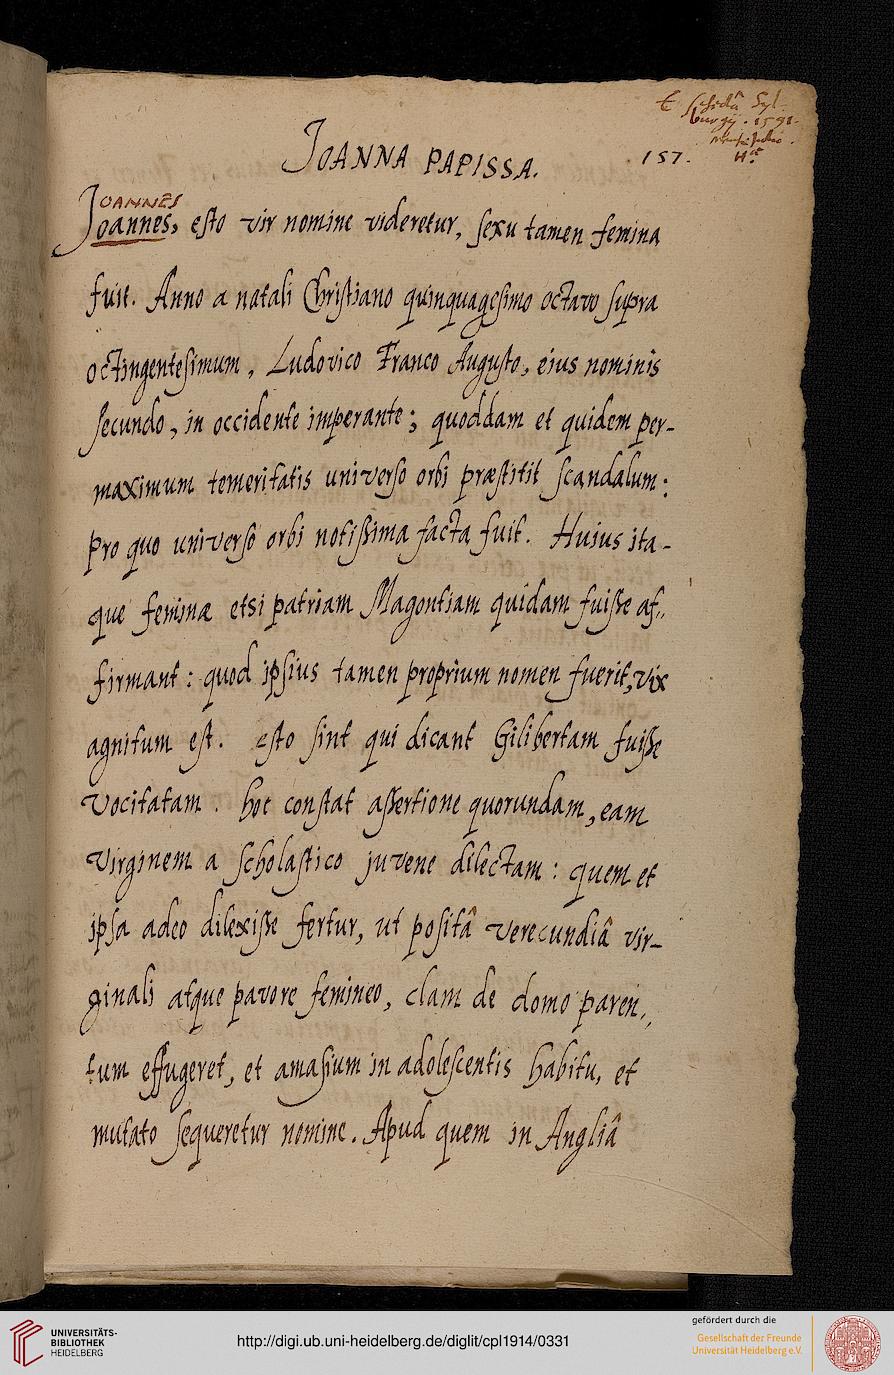 E schedâ Syl-
burgij. 1591.
mense Julio.
JOANNA PAPISSA.
157.
JOANNES
Joannes, esto vir nomine videretur, sexu tamen femina
fuit. Anno a natali Christiano quinquagesimo octavo supra
octingentesimum, Ludovico Franco Augusto, eius nominis
secundo, in occidente imperante; quoddam et quidem per-
maximum temeritatis universo orbi præstitit scandalum:
pro quo universo orbi notißima facta fuit. Huius ita-
que feminæ etsi patriam Magontiam quidam fuiße af,,
firmant: quod ipsius tamen proprium nomen fuerit, vix
agnitum est. esto sint qui dicant Gilibertam fuiße
vocitatam. hoc constat aßertione quorundam, eam
virginem a scholastico juvene dilectam: quem et
ipsa adeo dilexiße fertur, ut positâ verecundiâ vir-
ginali atque pavore femineo, clam de domo paren,,
tum effugeret, et amasium in adolescentis habitu, et
mutato sequeretur nomine. Apud quem in Angliâ
UNIVERSITÄTS-
BIBLIOTHEK
HEIDELBERG
http://digi.ub.uni-heidelberg.de/diglit/cpl1914/0331
gefördert durch die
Gesellschaft der Freunde
Universität Heidelberg e.V.